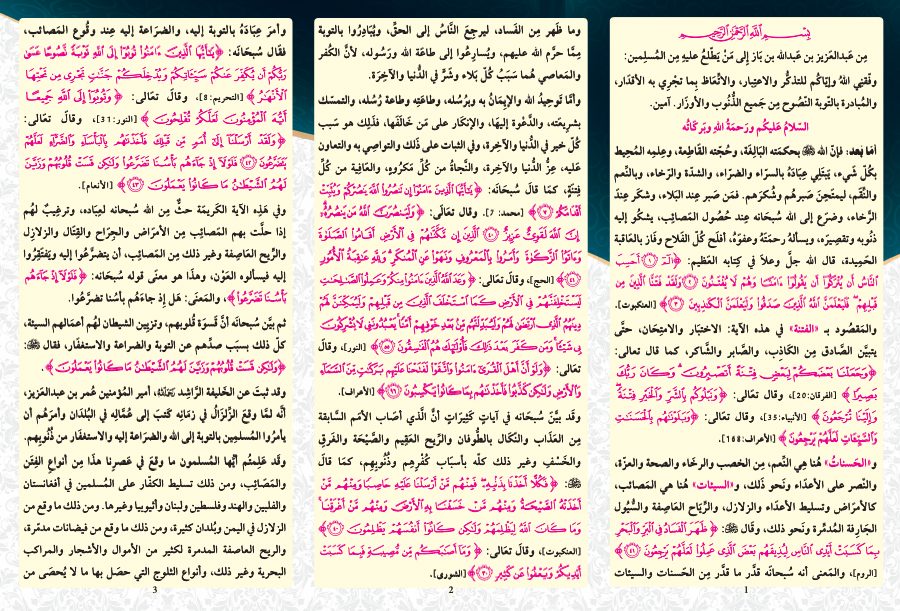 بِسْمِ اللَّهِ الرَّحْمَٰنِ الرَّحِيمِ
مِن عَبدالعَزيز بن عَبدالله بن بَاز إلى مَنْ يَطَّلعُ عليهِ مِن المُسلِمين:
وفَّقني اللهُ وإيَّاكُم للتذكُّر والاعتِبار، والاتِّعَاظ بِما تجْرِي به الأقدَار،
والمُبادرة بالتَّوبة النَّصُوح مِن جَميع الذُّنُوب والأوزَار. آمين.
السّلامُ عَليكُم ورَحمَةُ اللهِ وبَركَاتُه
أمَّا بَعد: فإنَّ اللهَ ﷻ بِحكمَته البَالِغَة، وحُجّته القَاطِعَة، وعِلمِه المُحِيط
بكُلِّ شَيءٍ، يَبْتَلِي عِبَادَهُ بالسرّاء والضرّاء، والشدّة والرّخَاء، وبالنِّعم
والنِّقَم، ليمتَحِنَ صَبرهُم وشُكرَهم. فمَن صَبر عِند البَلاء، وشكَر عِندَ
الرَّخاء، وضرَع إلى اللهِ سُبحَانَه عِندَ حُصُول المَصائِب، يشكُو إليه
ذنُوبه وتقصِيرَه، ويسألهُ رحمَتهُ وعفوَهُ، أفلَح كُلَّ الفَلاح وفَاز بالعَاقبة
الحَمِيدة، قال اللهُ جلَّ وعلاَ في كِتابه العظِيم: ﴿الٓمٓ ۝١ أَحَسِبَ
النَّاسُ أَن يُتْرَكُوٓا۟ أَن يَقُولُوٓا۟ ءَامَنَّا وَهُمْ لَا يُفْتَنُونَ ۝٢ وَلَقَدْ فَتَنَّا الَّذِينَ مِن
قَبْلِهِمْ ۖ فَلَيَعْلَمَنَّ اللَّهُ الَّذِينَ صَدَقُوا۟ وَلَيَعْلَمَنَّ الْكَٰذِبِينَ ۝٣﴾ [العنكبوت].
والمَقصُود بـ «الفتنة» في هذه الآية: الاختِبَار والامتِحَان، حتَّى
يتبيَّن الصَّادق مِن الكَاذِب، والصَّابر والشَّاكر، كما قال تعالى:
﴿وَجَعَلْنَا بَعْضَكُمْ لِبَعْضٍ فِتْنَةً أَتَصْبِرُونَ ۗ وَكَانَ رَبُّكَ
بَصِيرًا﴾ [الفرقان:20]، وقال تعَالى: ﴿وَنَبْلُوكُم بِالشَّرِّ وَالْخَيْرِ فِتْنَةً ۖ
وَإِلَيْنَا تُرْجَعُونَ﴾ [الأنبياء:35]، وقال تعَالى: ﴿وَبَلَوْنَٰهُم بِالْحَسَنَٰتِ
وَالسَّيِّـَٔاتِ لَعَلَّهُمْ يَرْجِعُونَ﴾ [الأعراف:168].
و«الحَسناتُ» هُنا هِي النِّعَم، مِن الخصب والرخَاء والصحة والعزّة،
والنَّصر على الأعدَاء ونَحو ذَلك، و«السيئات» هُنا هِي المَصائب،
كالأمرَاض وتسليط الأعدَاء والزلازل، والرِّيَاح العَاصِفة والسُّيُول
الجَارِفة المُدمِّرة ونَحو ذلك، وقال ﷻ: ﴿ظَهَرَ الْفَسَادُ فِى الْبَرِّ وَالْبَحْرِ
بِمَا كَسَبَتْ أَيْدِى النَّاسِ لِيُذِيقَهُم بَعْضَ الَّذِى عَمِلُوا۟ لَعَلَّهُمْ يَرْجِعُونَ ۝٤١﴾
[الروم]، والمَعنى أنه سُبحَانَه قدَّر ما قدَّر مِن الحَسنات والسيئات
1
وما ظَهر مِن الفَساد، ليرجِعَ النَّاسُ إلى الحَقِّ، ويُبَادِرُوا بالتوبة
مِمَّا حرَّم اللهُ عليهِم، ويُسارِعُوا إلى طاعَة اللهِ ورَسُوله، لأنَّ الكُفر
والمَعاصِي هُما سَبَبُ كُلِّ بَلاء وشرٍّ في الدُّنيا والآخِرَة.
وأمَّا تَوحِيدُ الله والإيمَانُ به وبِرُسُله، وطَاعَتِه وطاعة رُسُله، والتمسّك
بشَريعَته، والدَّعْوة إليهَا، والإنكَار على مَن خَالفَهَا، فذَلِك هو سَبب
كُلّ خير في الدُّنيا والآخِرة، وفي الثبات على ذلك والتواصي به والتعاون
عليه، عِزُّ الدُّنيا والآخِرة، والنَّجاةُ من كُلِّ مَكرُوه، والعَافِية من كُلِّ
فِتنَةٍ، كمَا قالَ سُبحَانَه: ﴿يَٰٓأَيُّهَا الَّذِينَ ءَامَنُوٓا۟ إِن تَنصُرُوا۟ اللَّهَ يَنصُرْكُمْ وَيُثَبِّتْ
أَقْدَامَكُمْ ۝٧﴾ [محمد: 7]. وقال تعَالى: ﴿وَلَيَنصُرَنَّ اللَّهُ مَن يَنصُرُهُۥٓ ۗ
إِنَّ اللَّهَ لَقَوِىٌّ عَزِيزٌ ۝٤٠ الَّذِينَ إِن مَّكَّنَّٰهُمْ فِى الْأَرْضِ أَقَامُوا۟ الصَّلَوٰةَ
وَءَاتَوُا۟ الزَّكَوٰةَ وَأَمَرُوا۟ بِالْمَعْرُوفِ وَنَهَوْا۟ عَنِ الْمُنكَرِ ۗ وَلِلَّهِ عَٰقِبَةُ الْأُمُورِ
۝٤١﴾ [الحج]، وقال تعَالى: ﴿وَعَدَ اللَّهُ الَّذِينَ ءَامَنُوا۟ مِنكُمْ وَعَمِلُوا۟ الصَّٰلِحَٰتِ
لَيَسْتَخْلِفَنَّهُمْ فِى الْأَرْضِ كَمَا اسْتَخْلَفَ الَّذِينَ مِن قَبْلِهِمْ وَلَيُمَكِّنَنَّ لَهُمْ
دِينَهُمُ الَّذِى ارْتَضَىٰ لَهُمْ وَلَيُبَدِّلَنَّهُم مِّنۢ بَعْدِ خَوْفِهِمْ أَمْنًا ۚ يَعْبُدُونَنِى لَا يُشْرِكُونَ
بِى شَيْـًٔا ۚ وَمَن كَفَرَ بَعْدَ ذَٰلِكَ فَأُو۟لَٰٓئِكَ هُمُ الْفَٰسِقُونَ ۝٥٥﴾ [النور]، وقال
تعَالى: ﴿وَلَوْ أَنَّ أَهْلَ الْقُرَىٰٓ ءَامَنُوا۟ وَاتَّقَوْا۟ لَفَتَحْنَا عَلَيْهِم بَرَكَٰتٍ مِّنَ السَّمَآءِ
وَالْأَرْضِ وَلَٰكِن كَذَّبُوا۟ فَأَخَذْنَٰهُم بِمَا كَانُوا۟ يَكْسِبُونَ ۝٩٦﴾ [الأعراف].
وقَد بيَّن سُبحَانَه في آياتٍ كَثِيرَاتٍ أنَّ الَّذي أصَاب الأمَم السَّابقة
مِن العَذَاب والنّكَال بالطُّوفان والرِّيح العَقيم والصَّيْحَة والغَرق
والخَسْفِ وغير ذلك كلّه بأسبَاب كُفْرِهِم وذُنُوبهِم، كمَا قال
ﷻ: ﴿فَكُلًّا أَخَذْنَا بِذَنۢبِهِۦ ۖ فَمِنْهُم مَّنْ أَرْسَلْنَا عَلَيْهِ حَاصِبًا وَمِنْهُم مَّنْ
أَخَذَتْهُ الصَّيْحَةُ وَمِنْهُم مَّنْ خَسَفْنَا بِهِ الْأَرْضَ وَمِنْهُم مَّنْ أَغْرَقْنَا ۚ
وَمَا كَانَ اللَّهُ لِيَظْلِمَهُمْ وَلَٰكِن كَانُوٓا۟ أَنفُسَهُمْ يَظْلِمُونَ ۝٤٠﴾
[العنكبوت]، وقال تعَالى: ﴿وَمَآ أَصَٰبَكُم مِّن مُّصِيبَةٍ فَبِمَا كَسَبَتْ
أَيْدِيكُمْ وَيَعْفُوا۟ عَن كَثِيرٍ ۝٣٠﴾ [الشورى].
2
وأمرَ عِبَادَهُ بالتوبة إليه، والضرَاعة إليه عِند وقُوع المَصائب،
فقال سُبحَانَه: ﴿يَٰٓأَيُّهَا الَّذِينَ ءَامَنُوا۟ تُوبُوٓا۟ إِلَى اللَّهِ تَوْبَةً نَّصُوحًا عَسَىٰ
رَبُّكُمْ أَن يُكَفِّرَ عَنكُمْ سَيِّـَٔاتِكُمْ وَيُدْخِلَكُمْ جَنَّٰتٍ تَجْرِى مِن تَحْتِهَا
الْأَنْهَٰرُ﴾ [التحريم:8]، وقال تعَالى: ﴿وَتُوبُوٓا۟ إِلَى اللَّهِ جَمِيعًا
أَيُّهَ الْمُؤْمِنُونَ لَعَلَّكُمْ تُفْلِحُونَ﴾ [النور:31]، وقال تعَالى:
﴿وَلَقَدْ أَرْسَلْنَآ إِلَىٰٓ أُمَمٍ مِّن قَبْلِكَ فَأَخَذْنَٰهُم بِالْبَأْسَآءِ وَالضَّرَّآءِ لَعَلَّهُمْ
يَتَضَرَّعُونَ ۝٤٢ فَلَوْلَآ إِذْ جَآءَهُم بَأْسُنَا تَضَرَّعُوا۟ وَلَٰكِن قَسَتْ قُلُوبُهُمْ وَزَيَّنَ
لَهُمُ الشَّيْطَٰنُ مَا كَانُوا۟ يَعْمَلُونَ ۝٤٣﴾ [الأنعام].
وفي هَذِه الآية الكَريمَة حثٌّ مِن اللهِ سُبحَانه لعِبَاده، وترغِيبٌ لهُم
إذا حلَّت بهم المَصائِب مِن الأمرَاض والجِرَاح والقِتَال والزلازل
والرِّيح العاصفة وغير ذلك مِن المصائب، أن يتضرّعُوا إليه ويَفتَقِرُوا
إليه فيسألوه العَوْن، وهذَا هو معنَى قوله سُبحَانه: ﴿فَلَوْلَآ إِذْ جَآءَهُم
بَأْسُنَا تَضَرَّعُوا۟﴾، والمَعنَى: هَل إذ جَاءهُم بأسُنا تضرعُوا.
ثم بيَّن سُبحَانهُ أنَّ قسوَة قُلوبهم، وتزيِين الشيطَان لهُم أعمَالهم السيئة،
كلّ ذلك بسبَب صدَّهم عن التوبة والضراعة والاستغفَار، فقال ﷻ:
﴿وَلَٰكِن قَسَتْ قُلُوبُهُمْ وَزَيَّنَ لَهُمُ الشَّيْطَٰنُ مَا كَانُوا۟ يَعْمَلُونَ﴾.
وقد ثبتَ عن الخَليفة الرَّاشِد رحمه الله، أمير المُؤمنين عُمر بن عبدالعَزيز،
أنَّه لمّا وقعَ الزَّلزَالُ في زمَانِه كَتبَ إلى عُمَّاله في البُلدَان وأمرَهُم أن
يأمرُوا المُسلِمين بالتوبة إلى الله والضرَاعة إليه والاستغفَار من ذُنُوبِهِم.
وقَد عَلِمتُم أيُّها المُسلمون ما وقعَ في عَصرِنا هذَا مِن أنوَاعِ الفِتَن
والمَصَائب، ومِن ذلك تسليط الكفَّار على المُسلمين في أفغَانستان
والفلبين والهند وفلسطين ولبنان وأثيوبيا وغيرها. ومِن ذلك ما وقع من
الزلازل في اليمن وبُلدان كثيرة، ومن ذلك ما وقع من فيضانات مدمّرة،
والريح العاصفة المدمرة لكثير من الأموال والأشجار والمراكب
البحرية وغير ذلك، وأنواع الثلوج التي حصَل بها ما لا يُحصَى من
3